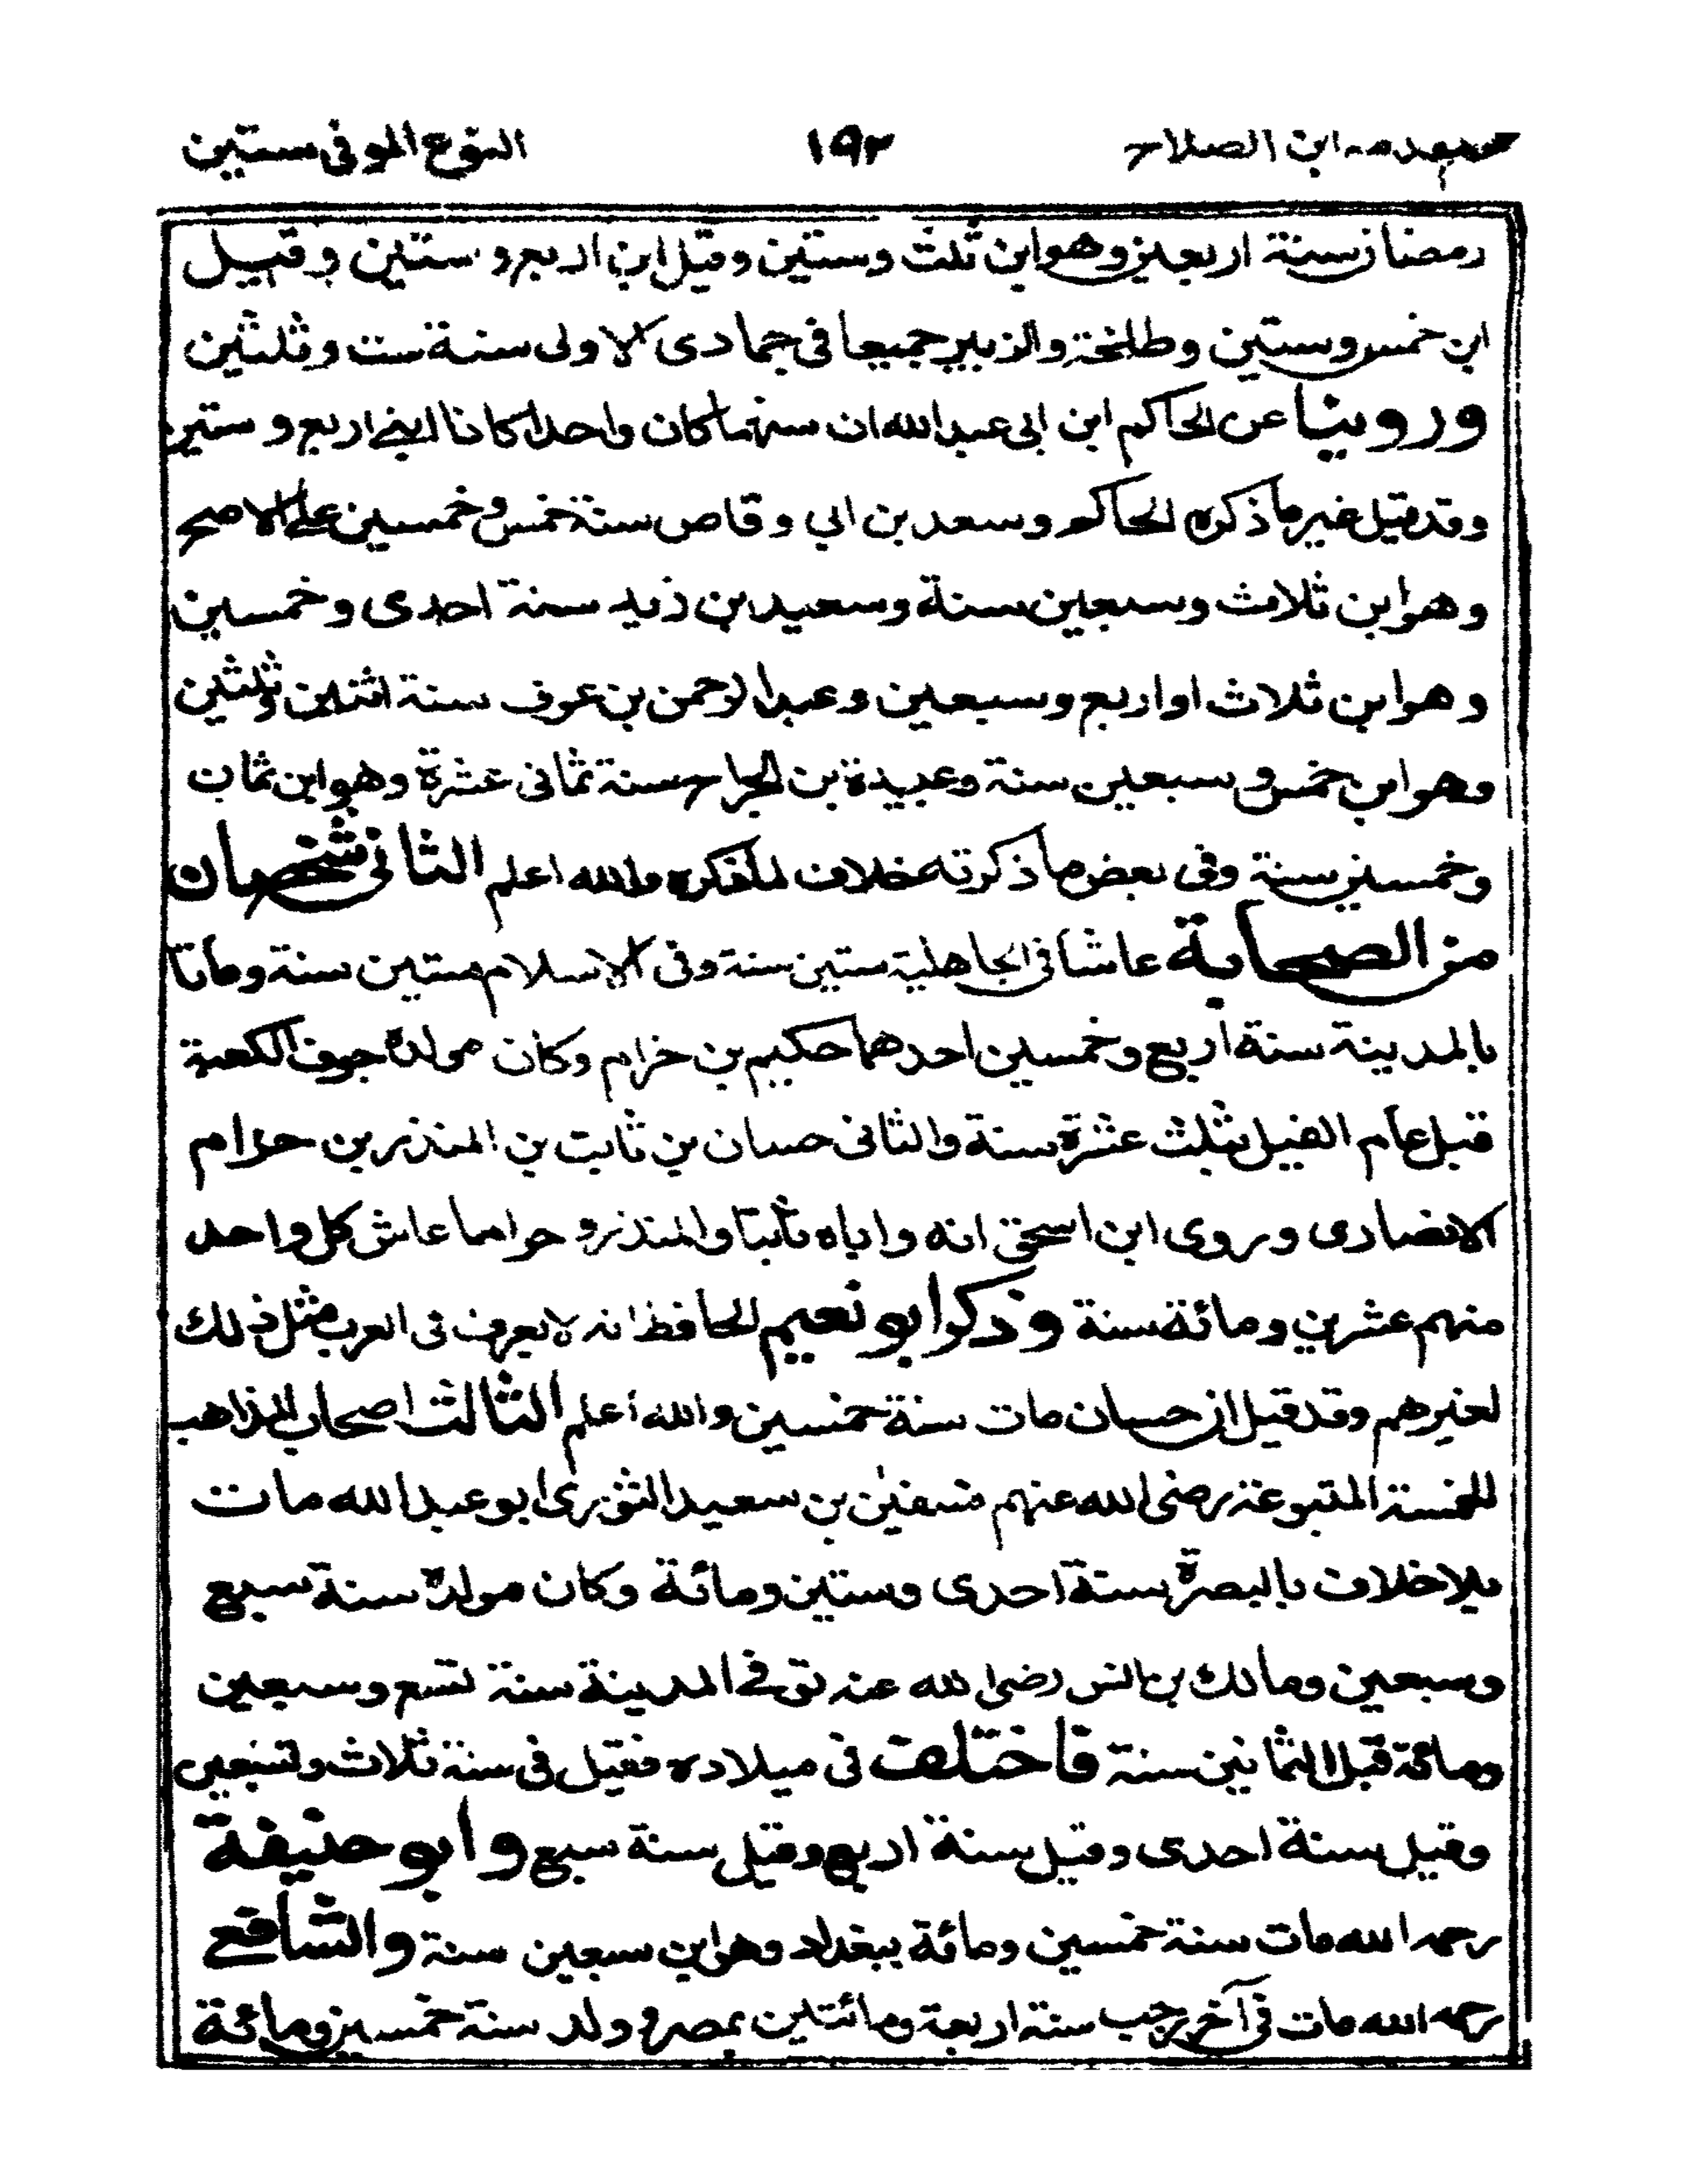 مقدمه ابن الصلاح ١٩٢ النوع الموفى ستين
رمضان سنة اربعين وهو ابن ثلث وستين وقيل ابن اربع و ستين و قيل
ابن خمس وستين وطلحة والزبير جميعا فى جمادى الاولى سنة ست وثلثين
وروينا عن الحاكم ابن ابى عبد الله ان سنهما كان واحدا كانا ابنى اربع و ستين
وقد قيل غير ما ذكره الحاكم وسعد بن ابي وقاص سنة خمس وخمسين على الاصح
وهو ابن ثلاث وسبعين سنة وسعيد بن زيد سنة احدى وخمسين
وهو ابن ثلاث او اربع وسبعين وعبد الرحمن بن عوف سنة اثنين وثلثين
وهو ابن خمس و سبعين سنة وعبيدة بن الجراح سنة ثمانى عشرة وهو ابن ثمان
وخمسين سنة وفى بعض ما ذكرته خلاف لم اذكره والله اعلم الثانى شخصان
من الصحابة عاشا فى الجاهلية ستين سنة وفى الاسلام ستين سنة وماتا
بالمدينة سنة اربع وخمسين احدهما حكيم بن خزام وكان مولده جوف الكعبة
قبل عام الفيل بثلث عشرة سنة والثانى حسان بن ثابت بن المنذر بن حرام
الانصارى وروى ابن اسحق انه واباه ثابتا والمنذر و حراما عاش كل واحد
منهم عشرين ومائة سنة وذكر ابو نعيم الحافظ انه لا يعرف فى العرب مثل ذلك
لغيرهم وقد قيل ان حسان مات سنة خمسين والله اعلم الثالث اصحاب المذاهب
الخمسة المتبوعة رضى الله عنهم فسفين بن سعيد الثورى ابو عبد الله مات
بلا خلاف بالبصرة سنة احدى وستين ومائة وكان مولده سنة سبع
وسبعين ومالك بن انس رضى الله عنه توفى المدينة سنة تسع وسبعين
ومائة قبل الثمانين سنة فاختلف فى ميلاده فقيل فى سنة ثلاث وتسعين
وقيل سنة احدى وقيل سنة اربع وقيل سنة سبع وابو حنيفة
رحمه الله مات سنة خمسين ومائة ببغداد وهو ابن سبعين سنة والشافعى
رحمه الله مات فى آخر رجب سنة اربعة ومائتين بمصر و ولد سنة خمسين ومائة